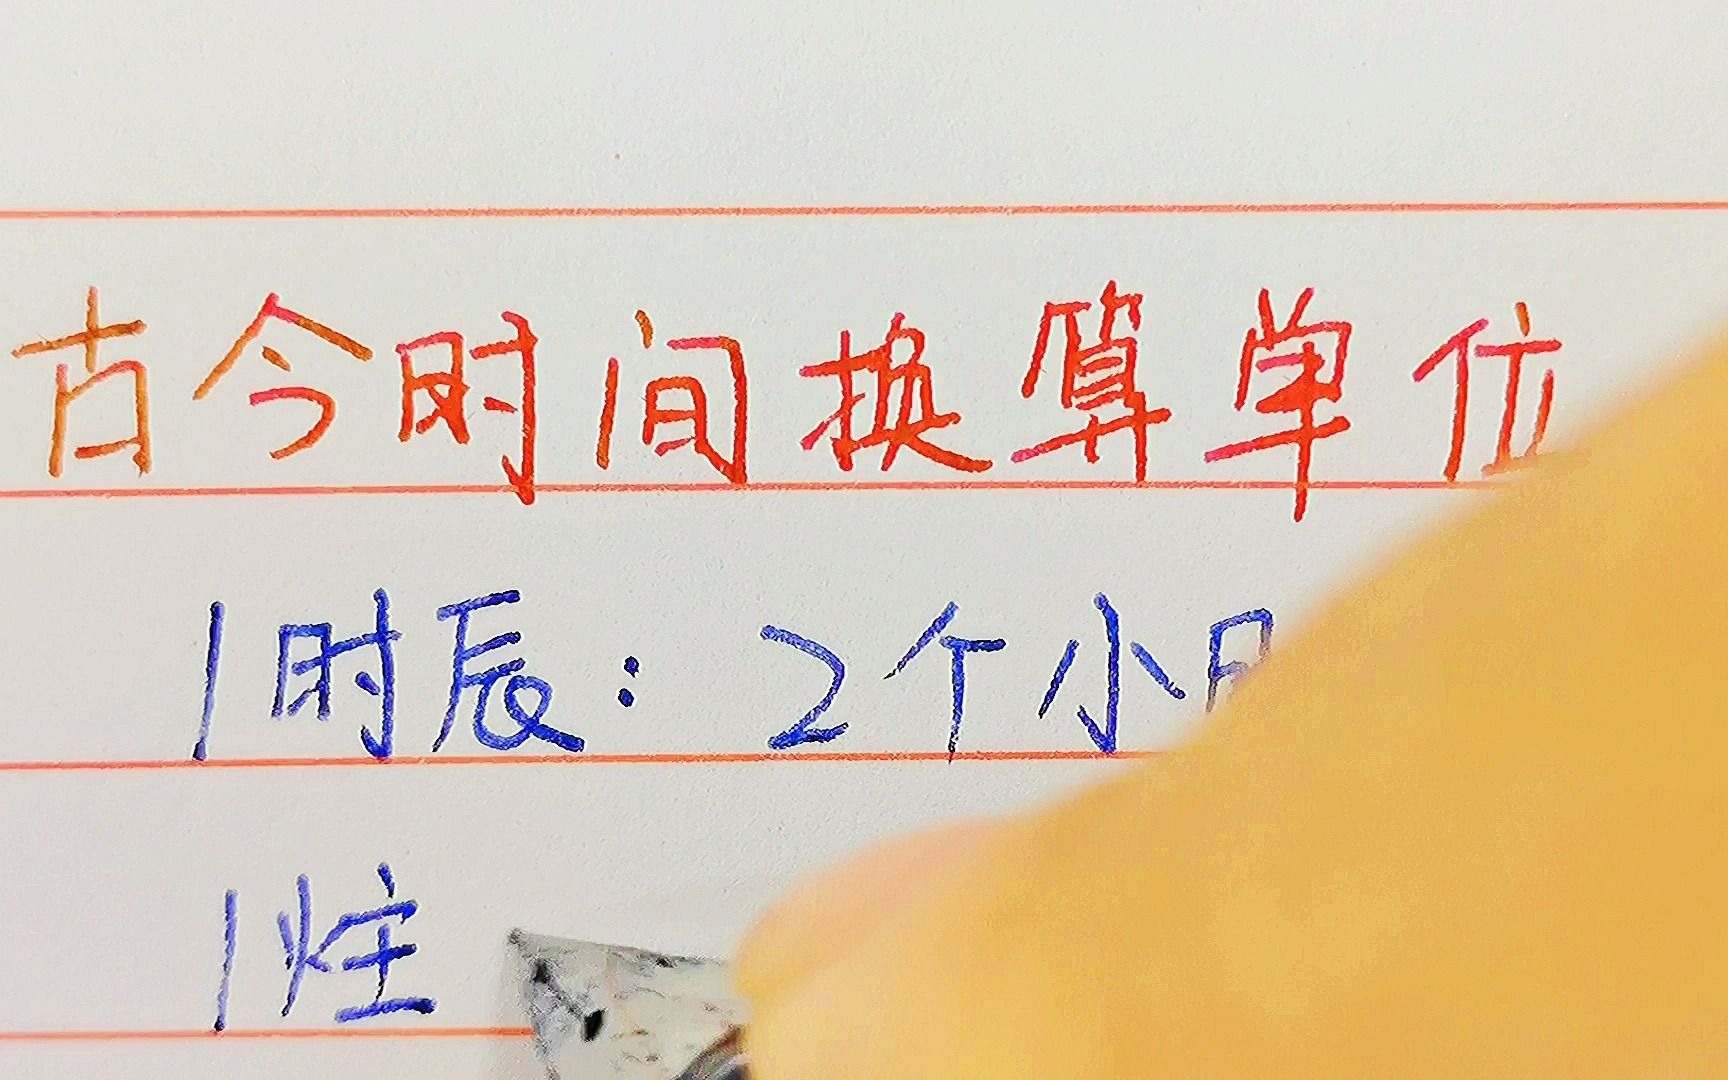 古今时间换算单位
1时辰：2个小时
1炷